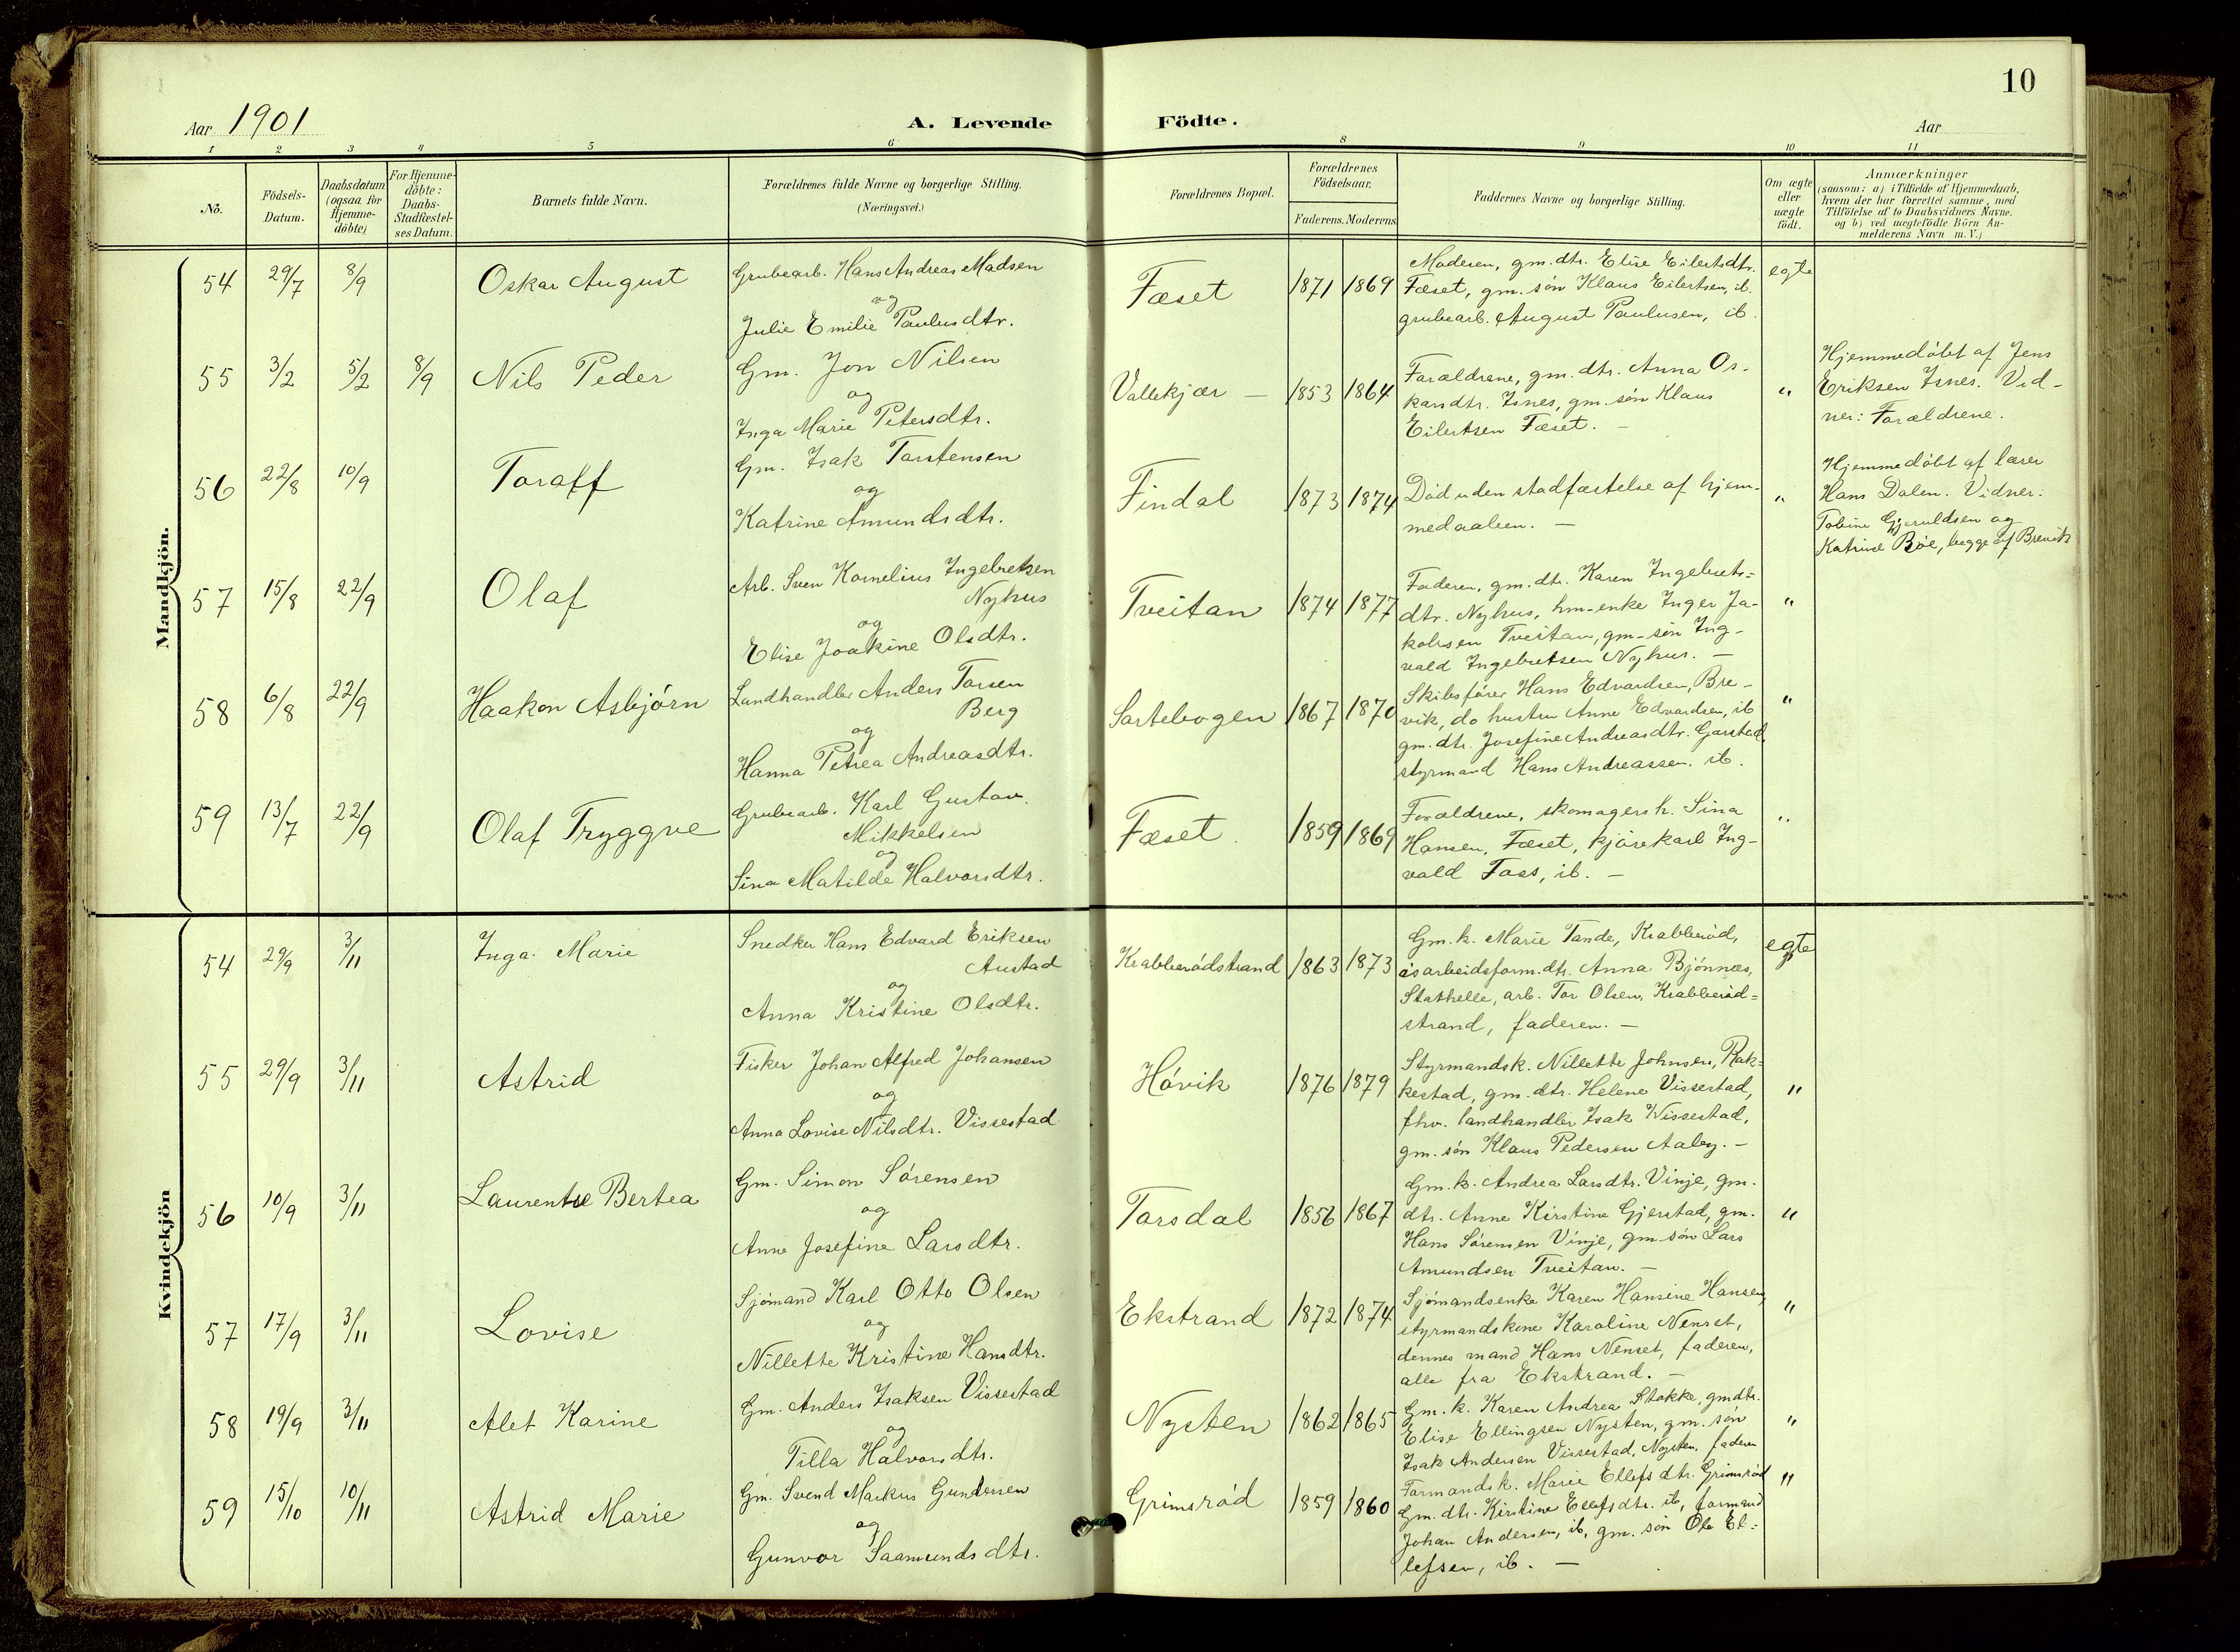 10
Aar 1901
A. Levende
Födte.
Aar
1 2 3 4 5 6 8 9 10 11
No.
Födsels-
Datum.
Daabsdatum
(ogsaa for
Hjemme-
döbte)
For Hjemme-
döbte:
Daabs-
Stadfæstel-
ses Datum.
Barnets fulde Navn.
Forældrenes fulde Navne og borgerlige Stilling.
(Næringsvei.)
Forældrenes Bopæl.
Forældrenes
Födselsaar.
Faderens. Moderens.
Faddernes Navne og borgerlige Stilling.
Om ægte
eller
uægte
födt.
Anmærkninger
(saasom: a) i Tilfælde af Hjemmedaab,
hvem der har forrettet samme, med
Tilföielse af to Daabsvidners Navne.
og b) ved uægtefödte Börn An-
melderens Navn m. V.)
Mandkjön.
54 29/7 8/9 Oskar August
Grubearb. Hans Andreas Madsen
og
Julie Emilie Paulusdtr.
Fæset 1871 1869
Moderen, gm. dtr. Elise Eilertsdtr.
Fæset, gm. søn Klaus Eilertsen, ib.
grubearb. August Paulusen, ib.
egte
55 3/2 5/2 8/9 Nils Peder
Gm. Jon Nilsen
og
Inga Marie Petersdtr.
Vallekjær — 1853 1864
Forældrene, gm. dtr. Anna Os-
karsdtr. Isnes, gm. søn Klaus
Eilertsen Fæset. —
"
Hjemmedøbt af Jens
Eriksen Isnes. Vid-
ner: Forældrene.
56 22/8 10/9 Toralf
Gm. Isak Torstensen
og
Katrine Amundsdtr.
Findal 1873 1874
Død uden stadfæstelse af hjem-
medaaben. —
"
Hjemmedøbt af lærer
Hans Dalen. Vidner:
Tobine Gjeruldsen og
Katrine Bøe, begge af Brevik
57 15/8 22/9 Olaf
Arb. Sven Kornelius Ingebretsen
Nyhus
og
Elise Joakine Olsdtr.
Tveitan 1874 1877
Faderen, gm. dtr. Karen Ingebrets=
dtr. Nyhus, hm-enke Inger Ja-
kobsen Tveitan, gm-søn Ing-
vald Ingebretsen Nyhus. —
"
58 6/8 22/9 Haakon Asbjörn
Landhandler Anders Torsen
Berg
og
Hanna Petrea Andreasdtr.
Sartebogen 1867 1870
Skibsfører Hans Edvardsen, Bre-
vik, do hustru Anne Edvardsen, ib
gm. dtr. Josefine Andreasdtr. Garstad,
styrmand Hans Andreassen. ib.
"
59 13/7 22/9 Olaf Tryggve
Grubearb. Karl Gustav
Mikkelsen
og
Sina Matilde Halvorsdtr.
Fæset. 1859 1869
Forældrene, skomagersh. Sina
Hansen, Fæset, kjørekarl Ing-
vald Foss, ib. —
"
Kvindekjön
54 29/9 3/11 Inga Marie
Snedker Hans Edvard Eriksen
Austad
og
Anna Kristine Olsdtr.
Krabberødstrand 1863 1873
Gm. k. Marie Tande, Krabberød,
isarbeidsform. dtr. Anna Bjønnæs,
Stathelle, arb. Tor Olsen, Krabberød=
strand, faderen. —
egte
55 29/9 3/11 Astrid
Fisker Johan Alfred Johansen
og
Anna Lovise Nilsdtr. Vissestad
Høvik 1876 1879
Styrmandsk. Nillette Johnsen, Rak=
kestad, gm. dtr. Helene Vissestad,
fhv. landhandler Isak Wissestad,
gm. søn Klaus Pedersen Aaby. —
"
56 10/9 3/11 Laurentse Bertea
Gm. Simon Sørensen
og
Anne Josefine Larsdtr.
Torsdal 1856 1867
Gm. k. Andrea Larsdtr. Vinje, gm.
dtr. Anne Kirstine Gjerstad, gm.
Hans Sørensen Vinje, gm søn Lars
Amundsen Tveitan. —
"
57 17/9 3/11 Lovise
Sjømand Karl Otto Olsen
og
Nillette Kristine Hansdtr.
Ekstrand 1872 1874
Sjømandsenke Karen Hansine Hansen,
styrmandskone Karoline Nenset,
dennes mand Hans Nenset, faderen,
alle fra Ekstrand. —
"
58 19/9 3/11 Alet Karine
Gm. Anders Isaksen Vissestad
og
Tilla Halvorsdtr.
Nysten 1862 1865
Gm. k. Karen Andrea Stokke, gmdtr.
Elise Ellingsen Nysten, gm. søn
Isak Andersen Vissestad, Nysten, faderen
"
59 15/10 10/11 Astrid Marie
Gm. Svend Markus Gundersen
og
Gunvor Saamundsdtr.
Grimsrød 1859 1860
Formandsk. Marie Ellefsdtr. Grimsrød
Gm. dtr. Kirstine Ellefsdtr. ib, formand
Johan Andersen, ib, gm. søn Ole El=
lefsen, ib. —
"